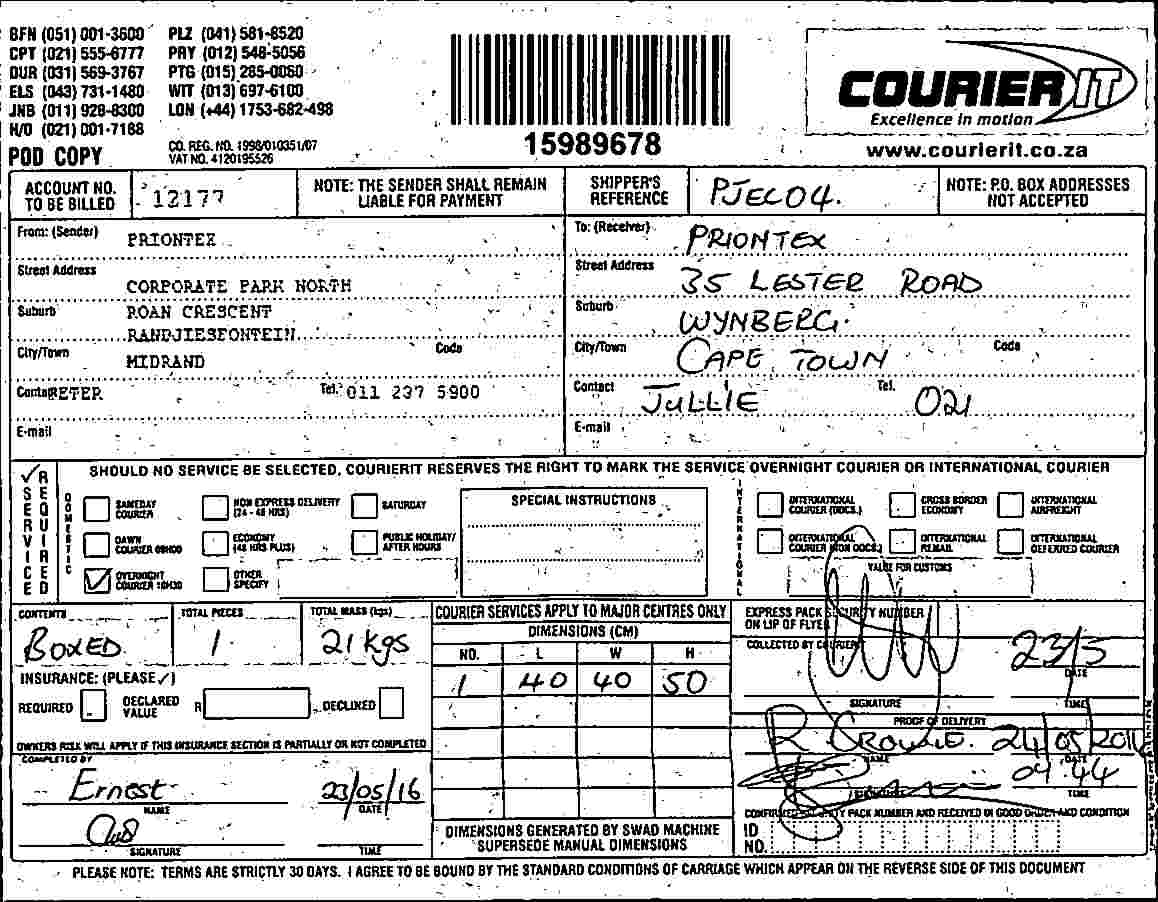 BFN (051) 001-3600 PLZ (041) 581-8520
CPT (021) 555-6777 PRY (012) 548-5056
DUR (031) 569-3767 PTG (015) 285-0060
ELS (043) 731-1480 WIT (013) 697-6100
JNB (011) 928-8300 LON (+44) 1753-682-498
H/O (021) 001-7188
POD COPY
CO. REG. NO. 1998/010351/07
VAT NO. 4120195526
15989678
COURIER IT
Excellence in motion
www.courierit.co.za
ACCOUNT NO. TO BE BILLED 12177
NOTE: THE SENDER SHALL REMAIN LIABLE FOR PAYMENT
SHIPPER'S REFERENCE PJEC04.
NOTE: P.O. BOX ADDRESSES NOT ACCEPTED
From: (Sender) PRIONTEX
Street Address CORPORATE PARK NORTH
Suburb ROAN CRESCENT
RANDJIESFONTEIN
City/Town MIDRAND Code
Contact PETER Tel. 011 237 5900
E-mail
To: (Receiver) PRIONTEX
Street Address 35 LESTER ROAD
Suburb WYNBERG.
City/Town CAPE TOWN Code
Contact JULLIE Tel. 021
E-mail
SERVICE REQUIRED
SHOULD NO SERVICE BE SELECTED, COURIERIT RESERVES THE RIGHT TO MARK THE SERVICE OVERNIGHT COURIER OR INTERNATIONAL COURIER
DOMESTIC
SAMEDAY COURIER
NON EXPRESS DELIVERY (24 - 48 HRS)
SATURDAY
DAWN COURIER 09H00
ECONOMY (48 HRS PLUS)
PUBLIC HOLIDAY/ AFTER HOURS
OVERNIGHT COURIER 10H30
OTHER SPECIFY
SPECIAL INSTRUCTIONS
INTERNATIONAL
INTERNATIONAL COURIER (DOCS.)
CROSS BORDER ECONOMY
INTERNATIONAL AIRFREIGHT
INTERNATIONAL COURIER (NON DOCS.)
INTERNATIONAL REMAIL
INTERNATIONAL DEFERRED COURIER
VALUE FOR CUSTOMS
CONTENTS BOXED
TOTAL PIECES 1
TOTAL MASS (kgs) 21 kgs
INSURANCE: (PLEASE ✓)
REQUIRED DECLARED VALUE R DECLINED
OWNERS RISK WILL APPLY IF THIS INSURANCE SECTION IS PARTIALLY OR NOT COMPLETED
COMPLETED BY
Ernest 23/05/16
NAME DATE
SIGNATURE TIME
COURIER SERVICES APPLY TO MAJOR CENTRES ONLY
DIMENSIONS (CM)
NO. L W H
1 40 40 50
DIMENSIONS GENERATED BY SWAD MACHINE SUPERSEDE MANUAL DIMENSIONS
EXPRESS PACK SECURITY NUMBER
ON LIP OF FLYER
COLLECTED BY COURIERIT
23/5
DATE
SIGNATURE TIME
PROOF OF DELIVERY
24/05/2016
NAME DATE
09 44
SIGNATURE TIME
CONFIRMED SECURITY PACK NUMBER AND RECEIVED IN GOOD ORDER AND CONDITION
ID NO.
PLEASE NOTE: TERMS ARE STRICTLY 30 DAYS. I AGREE TO BE BOUND BY THE STANDARD CONDITIONS OF CARRIAGE WHICH APPEAR ON THE REVERSE SIDE OF THIS DOCUMENT